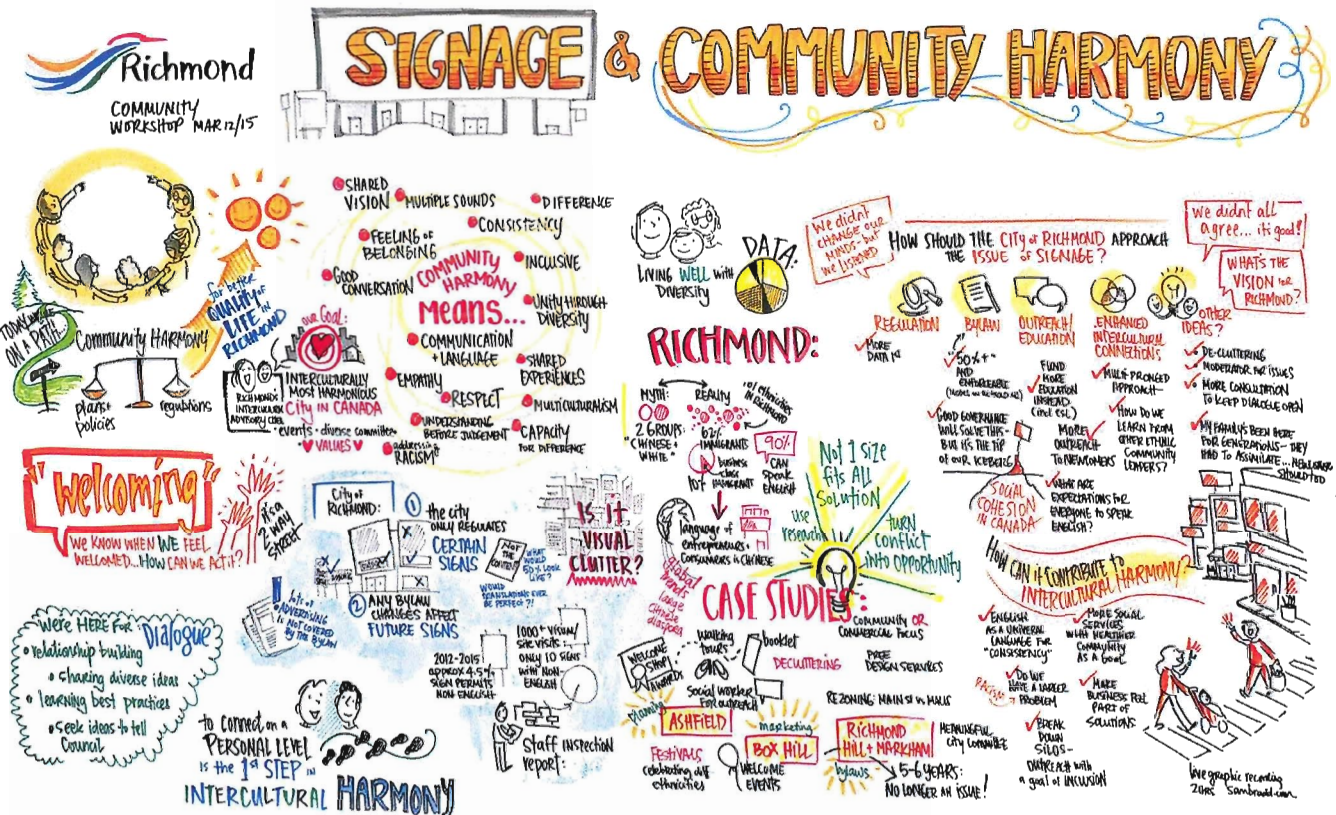 Richmond
COMMUNITY
WORKSHOP MAR 12/15
SIGNAGE & COMMUNITY HARMONY
TODAY
ON A PATH...
Community HARMONY
plans +
policies
regulations
for better
QUALITY of
LIFE in
RICHMOND
RICHMOND
INTERCULTURAL
ADVISORY
our Goal:
INTERCULTURALLY
MOST HARMONIOUS
City in CANADA
events · diverse committee
VALUES
SHARED
VISION
MULTIPLE SOUNDS
DIFFERENCE
CONSISTENCY
FEELING of
BELONGING
INCLUSIVE
GOOD
CONVERSATION
COMMUNITY
HARMONY
means...
UNITY THROUGH
DIVERSITY
COMMUNICATION
+ LANGUAGE
SHARED
EXPERIENCES
EMPATHY
RESPECT
MULTICULTURALISM
UNDERSTANDING
BEFORE JUDGEMENT
CAPACITY
FOR DIFFERENCE
addressing
RACISM
"welcoming"
WE KNOW WHEN WE FEEL
WELCOMED...HOW CAN WE ACT if?
it's a
2 WAY
STREET
WE'RE HERE FOR: Dialogue
relationship building
sharing diverse ideas
learning best practices
seek ideas to tell
Council
City of
RICHMOND:
1
the city
ONLY REGULATES
CERTAIN
SIGNS
2
ANY BYLAW
CHANGES AFFECT
FUTURE SIGNS
lots of
ADVERTISING
IS NOT COVERED
BY THE BYLAW
NOT
THE
CONTENT
WHAT
WOULD
50% LOOK
LIKE?
WOULD
TRANSLATIONS EVER
BE PERFECT?!
IS it
VISUAL
CLUTTER?
2012-2015
approx 4.5%
SIGN PERMITS
NON ENGLISH
1000+ VISUAL/
site visits:
ONLY 10 SIGNS
with NON-
ENGLISH
Staff inspection
report:
to connect on a
PERSONAL LEVEL
is the 1st STEP in
INTERCULTURAL HARMONY
LIVING WELL with
DIVERSITY
DATA:
RICHMOND:
MYTH:
2 GROUPS
"CHINESE +
WHITE"
REALITY
ethnicities
in RICHMOND
62%
IMMIGRANTS
business
class
IMMIGRANTS
90%
CAN
SPEAK
ENGLISH
language of
entrepreneurs +
consumers is CHINESE
global
trends
large
Chinese
diaspora
Not 1 size
fits ALL
SOLUTION
use
research
TURN
conflict
into OPPORTUNITY
CASE STUDIES:
WELCOME
SHOP
AWARDS
walking
tours
booklet
DECLUTTERING
Social worker
For outreach
COMMUNITY OR
COMMERCIAL FOCUS
FREE
DESIGN SERVICES
REZONING: MAIN ST vs MALLS
planning
ASHFIELD
FESTIVALS
celebrating diff
ethnicities
marketing
BOX HILL
WELCOME
EVENTS
RICHMOND
HILL + MARKHAM
bylaws
MEANINGFUL
CITY COMMITTEE
5-6 YEARS:
NO LONGER AN ISSUE!
We didn't
CHANGE OUR
MINDS - but
WE LISTENED
HOW SHOULD THE CITY of RICHMOND APPROACH
THE ISSUE of SIGNAGE?
We didn't all
agree... it's good!
WHAT'S THE
VISION for
RICHMOND?
REGULATION
MORE
DATA
BYLAW
50% +
AND
ENFORCEABLE
GOOD GOVERNANCE
WILL SOLVE THIS -
BUT it's THE TIP
of OUR ICEBERG
SOCIAL
COHESION
IN CANADA
OUTREACH/
EDUCATION
FUND
MORE
EDUCATION
INSTEAD
(incl ESL)
MORE
OUTREACH
TO NEWCOMERS
WHAT ARE
EXPECTATIONS FOR
EVERYONE TO SPEAK
ENGLISH?
ENHANCED
INTERCULTURAL
CONNECTIONS
MULTI-PRONGED
APPROACH
HOW DO WE
LEARN FROM
OTHER ETHNIC
COMMUNITY
LEADERS?
OTHER
IDEAS?
DE-CLUTTERING
MODERATOR FOR ISSUES
MORE CONSULTATION
TO KEEP DIALOGUE OPEN
MY FAMILY'S BEEN HERE
FOR GENERATIONS - THEY
HAD TO ASSIMILATE...
SHOULD TOO
HOW CAN it CONTRIBUTE to
INTERCULTURAL HARMONY?
ENGLISH
AS A UNIVERSAL
LANGUAGE FOR
"CONSISTENCY"
MORE SOCIAL
SERVICES
WITH HEALTHIER
COMMUNITY
AS A GOAL
RACISM
DO WE
HAVE A LARGER
PROBLEM
MAKE
BUSINESS FEEL
PART OF
SOLUTIONS
BREAK
DOWN
SILOS -
OUTREACH with
a goal of INCLUSION
live graphic recording